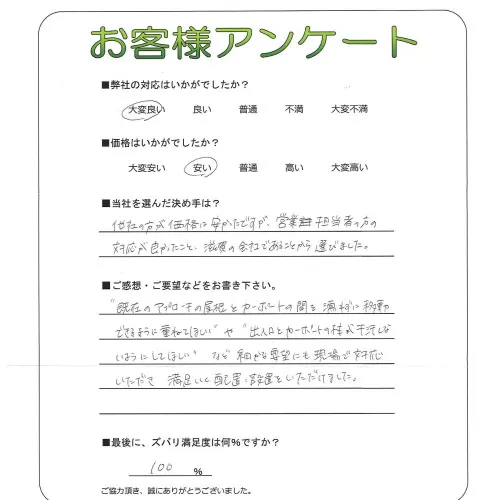 お客様アンケート
■弊社の対応はいかがでしたか？
大変良い 良い 普通 不満 大変不満
■価格はいかがでしたか？
大変安い 安い 普通 高い 大変高い
■当社を選んだ決め手は？
他社の方が価格は安かたですが、営業担当者の方の
対応が良かったこと、滋賀の会社であることから選びました。
■ご感想・ご要望などをお書き下さい。
"既存のアプローチの屋根とカーポートの間を濡れずに移動
できるように重ねてほしい"や"出入口とカーポートの柱が干渉しな
いようにしてほしい"など細かな要望にも現場で対応
いただき満足いく配置に設置をいただけました。
■最後に、ズバリ満足度は何%ですか？
100 %
ご協力頂き、誠にありがとうございました。